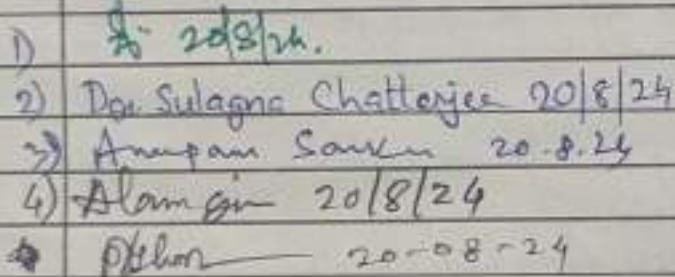 1) 20/8/24.
2) Dr. Sulagna Chatterjee 20/8/24
3) Anupam Sarkar 20.8.24
4) Alamgir 20/8/24
20-08-24